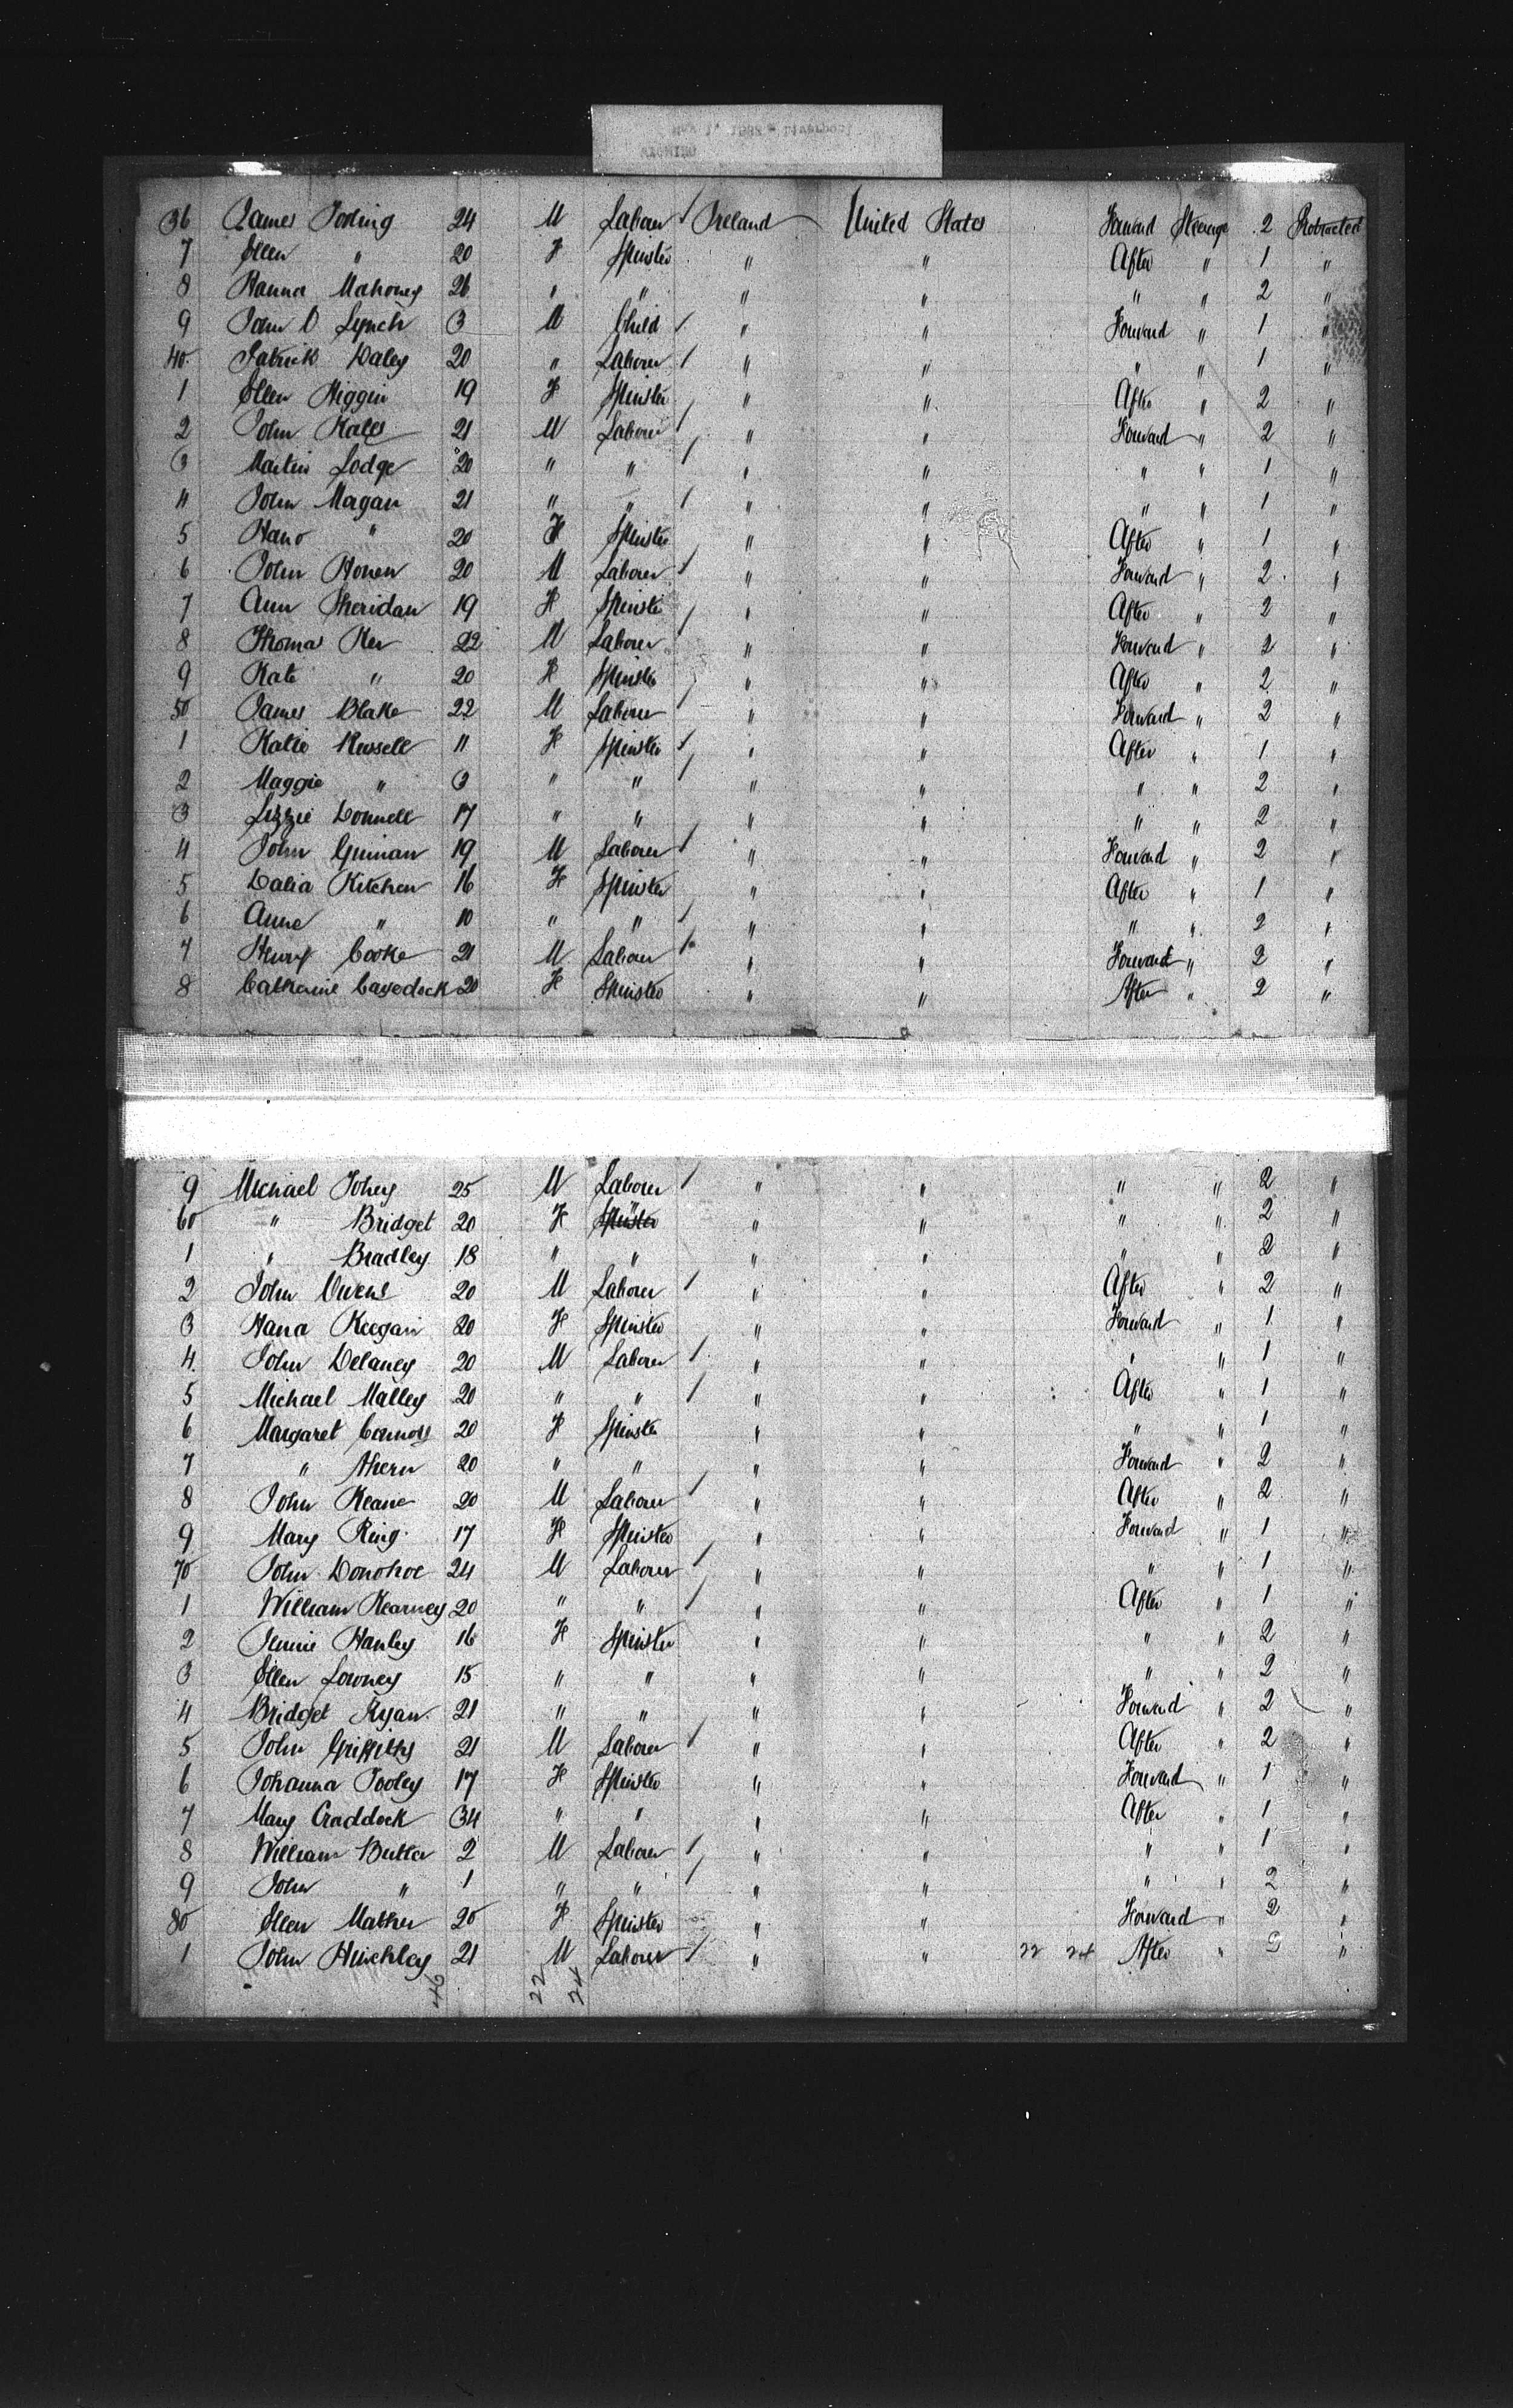 May 1, 1888 - Liverpool
WYOMING
36 James Josling 24 M Laborer / Ireland United States Forward Steerage 2 Protracted
7 Ellen " 20 F Spinster " " After " 1 "
8 Hanna Mahoney 26 " " " " " " 2 "
9 John D Lynch 3 M Child / " " Forward " 1 "
40 Patrick Daley 20 " Laborer / " " " " 1 "
1 Ellen Higgin 19 F Spinster " " After " 2 "
2 John 21 M Laborer / " " Forward " 2 "
3 Martin Lodge 20 " " / " " " " 1 "
4 John Magan 21 " " / " " " " 1 "
5 Hano " 20 F Spinster " " After " 1 "
6 John Honen 20 M Laborer / " " Forward " 2 "
7 Ann Sheridan 19 F Spinster " " After " 2 "
8 Thomas Ker 22 M Laborer / " " Forward " 2 "
9 Kate " 20 F Spinster " " After " 2 "
50 James Blake 22 M Laborer / " " Forward " 2 "
1 Katie Russell 11 F Spinster / " " After " 1 "
2 Maggie " 3 " " / " " " " 2 "
3 Lizzie Donnell 17 " " " " " " 2 "
4 John Guinan 19 M Laborer / " " Forward " 2 "
5 Dalia Kitchen 16 F Spinster " " After " 1 "
6 Anne " 10 " " / " " " " 2 "
7 Henry Cooke 21 M Laborer / " " Forward " 2 "
8 Catherine Casedock 20 F Spinster " " After " 2 "
9 Michael Tohey 25 M Laborer / " " " " 2 "
60 " Bridget 20 F Spinster " " " " 2 "
1 " Bradley 18 " " " " " " 2 "
2 John Owens 20 M Laborer / " " After " 2 "
3 Hana Keegan 20 F Spinster " " Forward " 1 "
4 John Delaney 20 M Laborer / " " " " 1 "
5 Michael Malley 20 " " / " " After " 1 "
6 Margaret Connors 20 F Spinster " " " " 1 "
7 " Ahern 20 " " " " Forward " 2 "
8 John Keane 20 M Laborer / " " After " 2 "
9 Mary Ring 17 F Spinster " " Forward " 1 "
70 John Donohoe 24 M Laborer / " " " " 1 "
1 William Kearney 20 " " / " " After " 1 "
2 Jennie Hanley 16 F Spinster " " " " 2 "
3 Ellen Lowney 15 " " " " " " 2 "
4 Bridget Ryan 21 " " " " Forward " 2 "
5 John Griffiths 21 M Laborer / " " After " 2 "
6 Johanna Tooley 17 F Spinster " " Forward " 1 "
7 Mary Craddock 34 " " " " After " 1 "
8 William Butler 2 M Laborer / " " " " 1 "
9 John " 1 " " / " " " " 2 "
80 Ellen Mather 20 F Spinster " " Forward " 2 "
1 John Hinchley 21 M Laborer / " " 22 24 After " 2 "
46 22 24